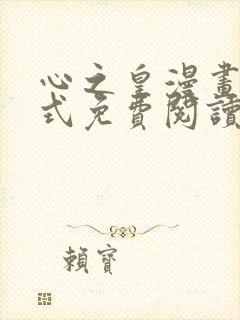 心之皇漫畫
式免費閱讀
賴寶